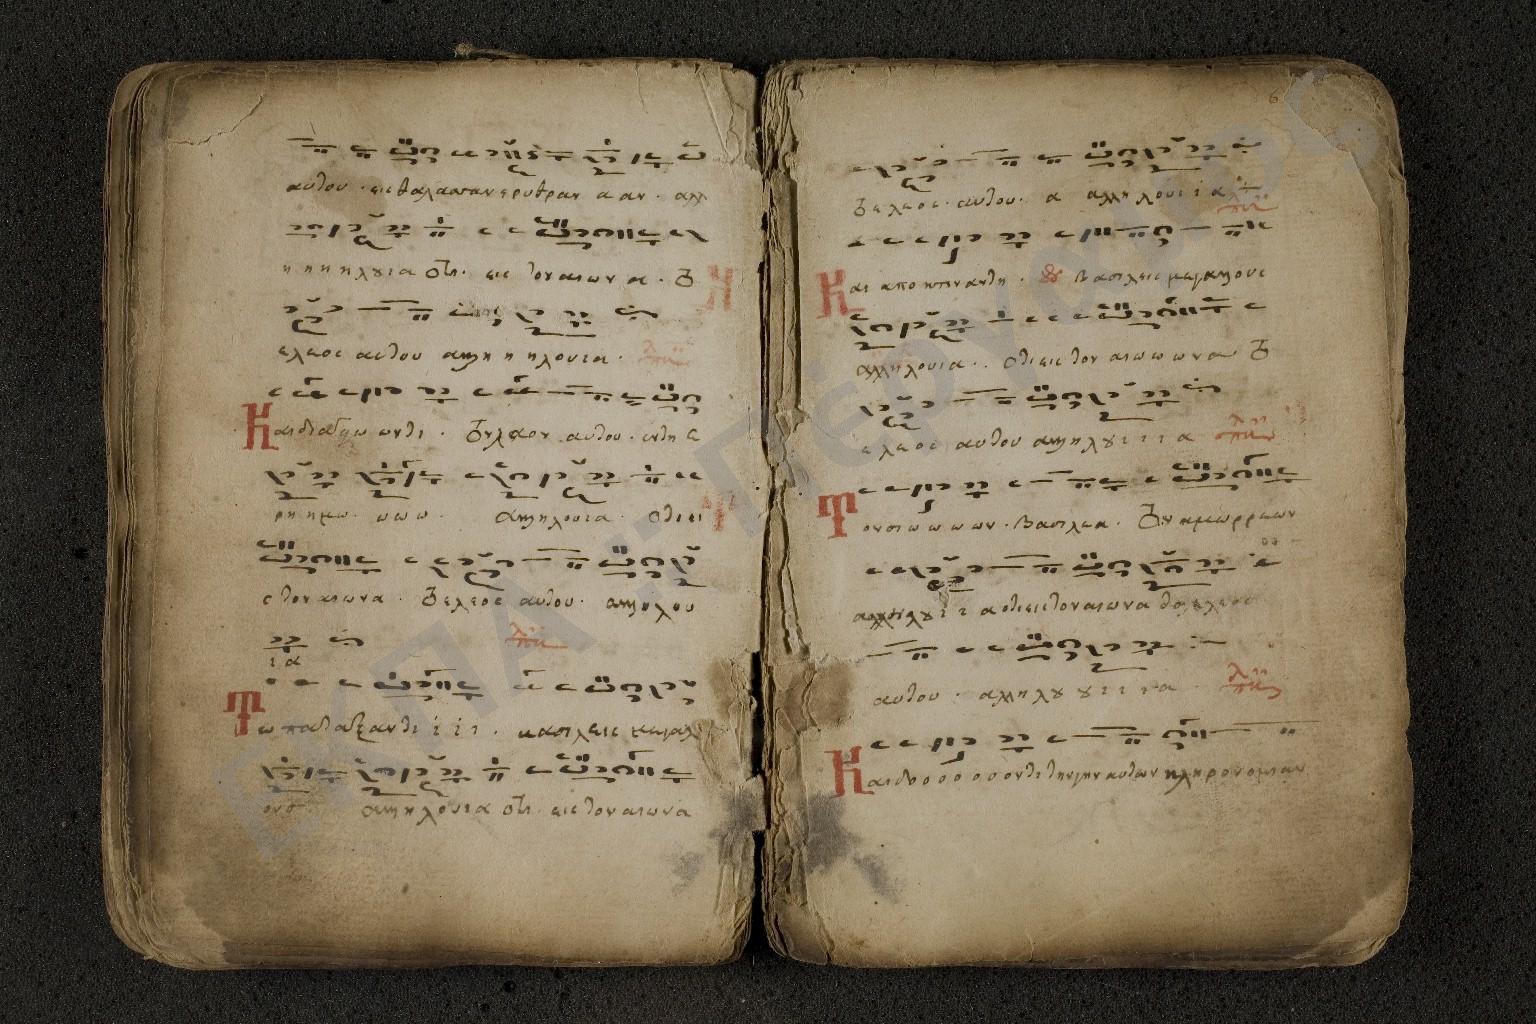 αυτου · εις θαλασσαν ερυθραν α αν · αλλ
η η η η λȣια οτι · εις τον αιωνα α · το
ελεος αυτου αλλη η ηλουια ·
Και διαγαγω οντι · τον λαον αυτου · εν τη ε
ρη η μω · ω ω ω · αλληλουια · οτι ει
ς τον αιωνα · το ελεος αυτου · αλληλου
ι α
Τω παταξαντι ι ι ι · βασιλεις μεγαλ
ους αλληλουια οτι · εις τον αιωνα
το ελεος · αυτου · α αλληλουι ι α
Και αποκτειναντι · βασιλεις κραταιους
αλληλουια · · οτι εις τον αιω ω ω να το
ελεος αυτου αλληλȣ ι ι ι α
Τον σι ω ω ω ων · βασιλεα · των αμορραιων
αλληλȣ ι ι α οτι εις τον αιωνα το ελεος
αυτου · αλληλȣ ȣ ι ι ι α
Και δο ο ο ο ο οντι την γην αυτων κληρονομιαν